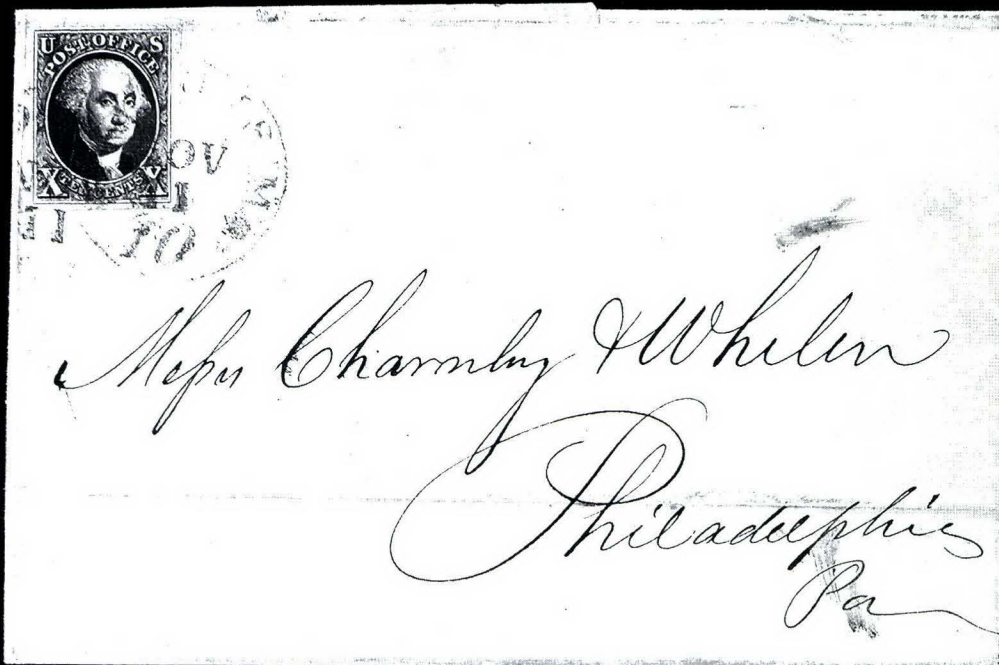 U S
POST OFFICE
X TEN CENTS X
NOV
11
10
Messrs Charnley & Whelen
Philadelphia
Pa